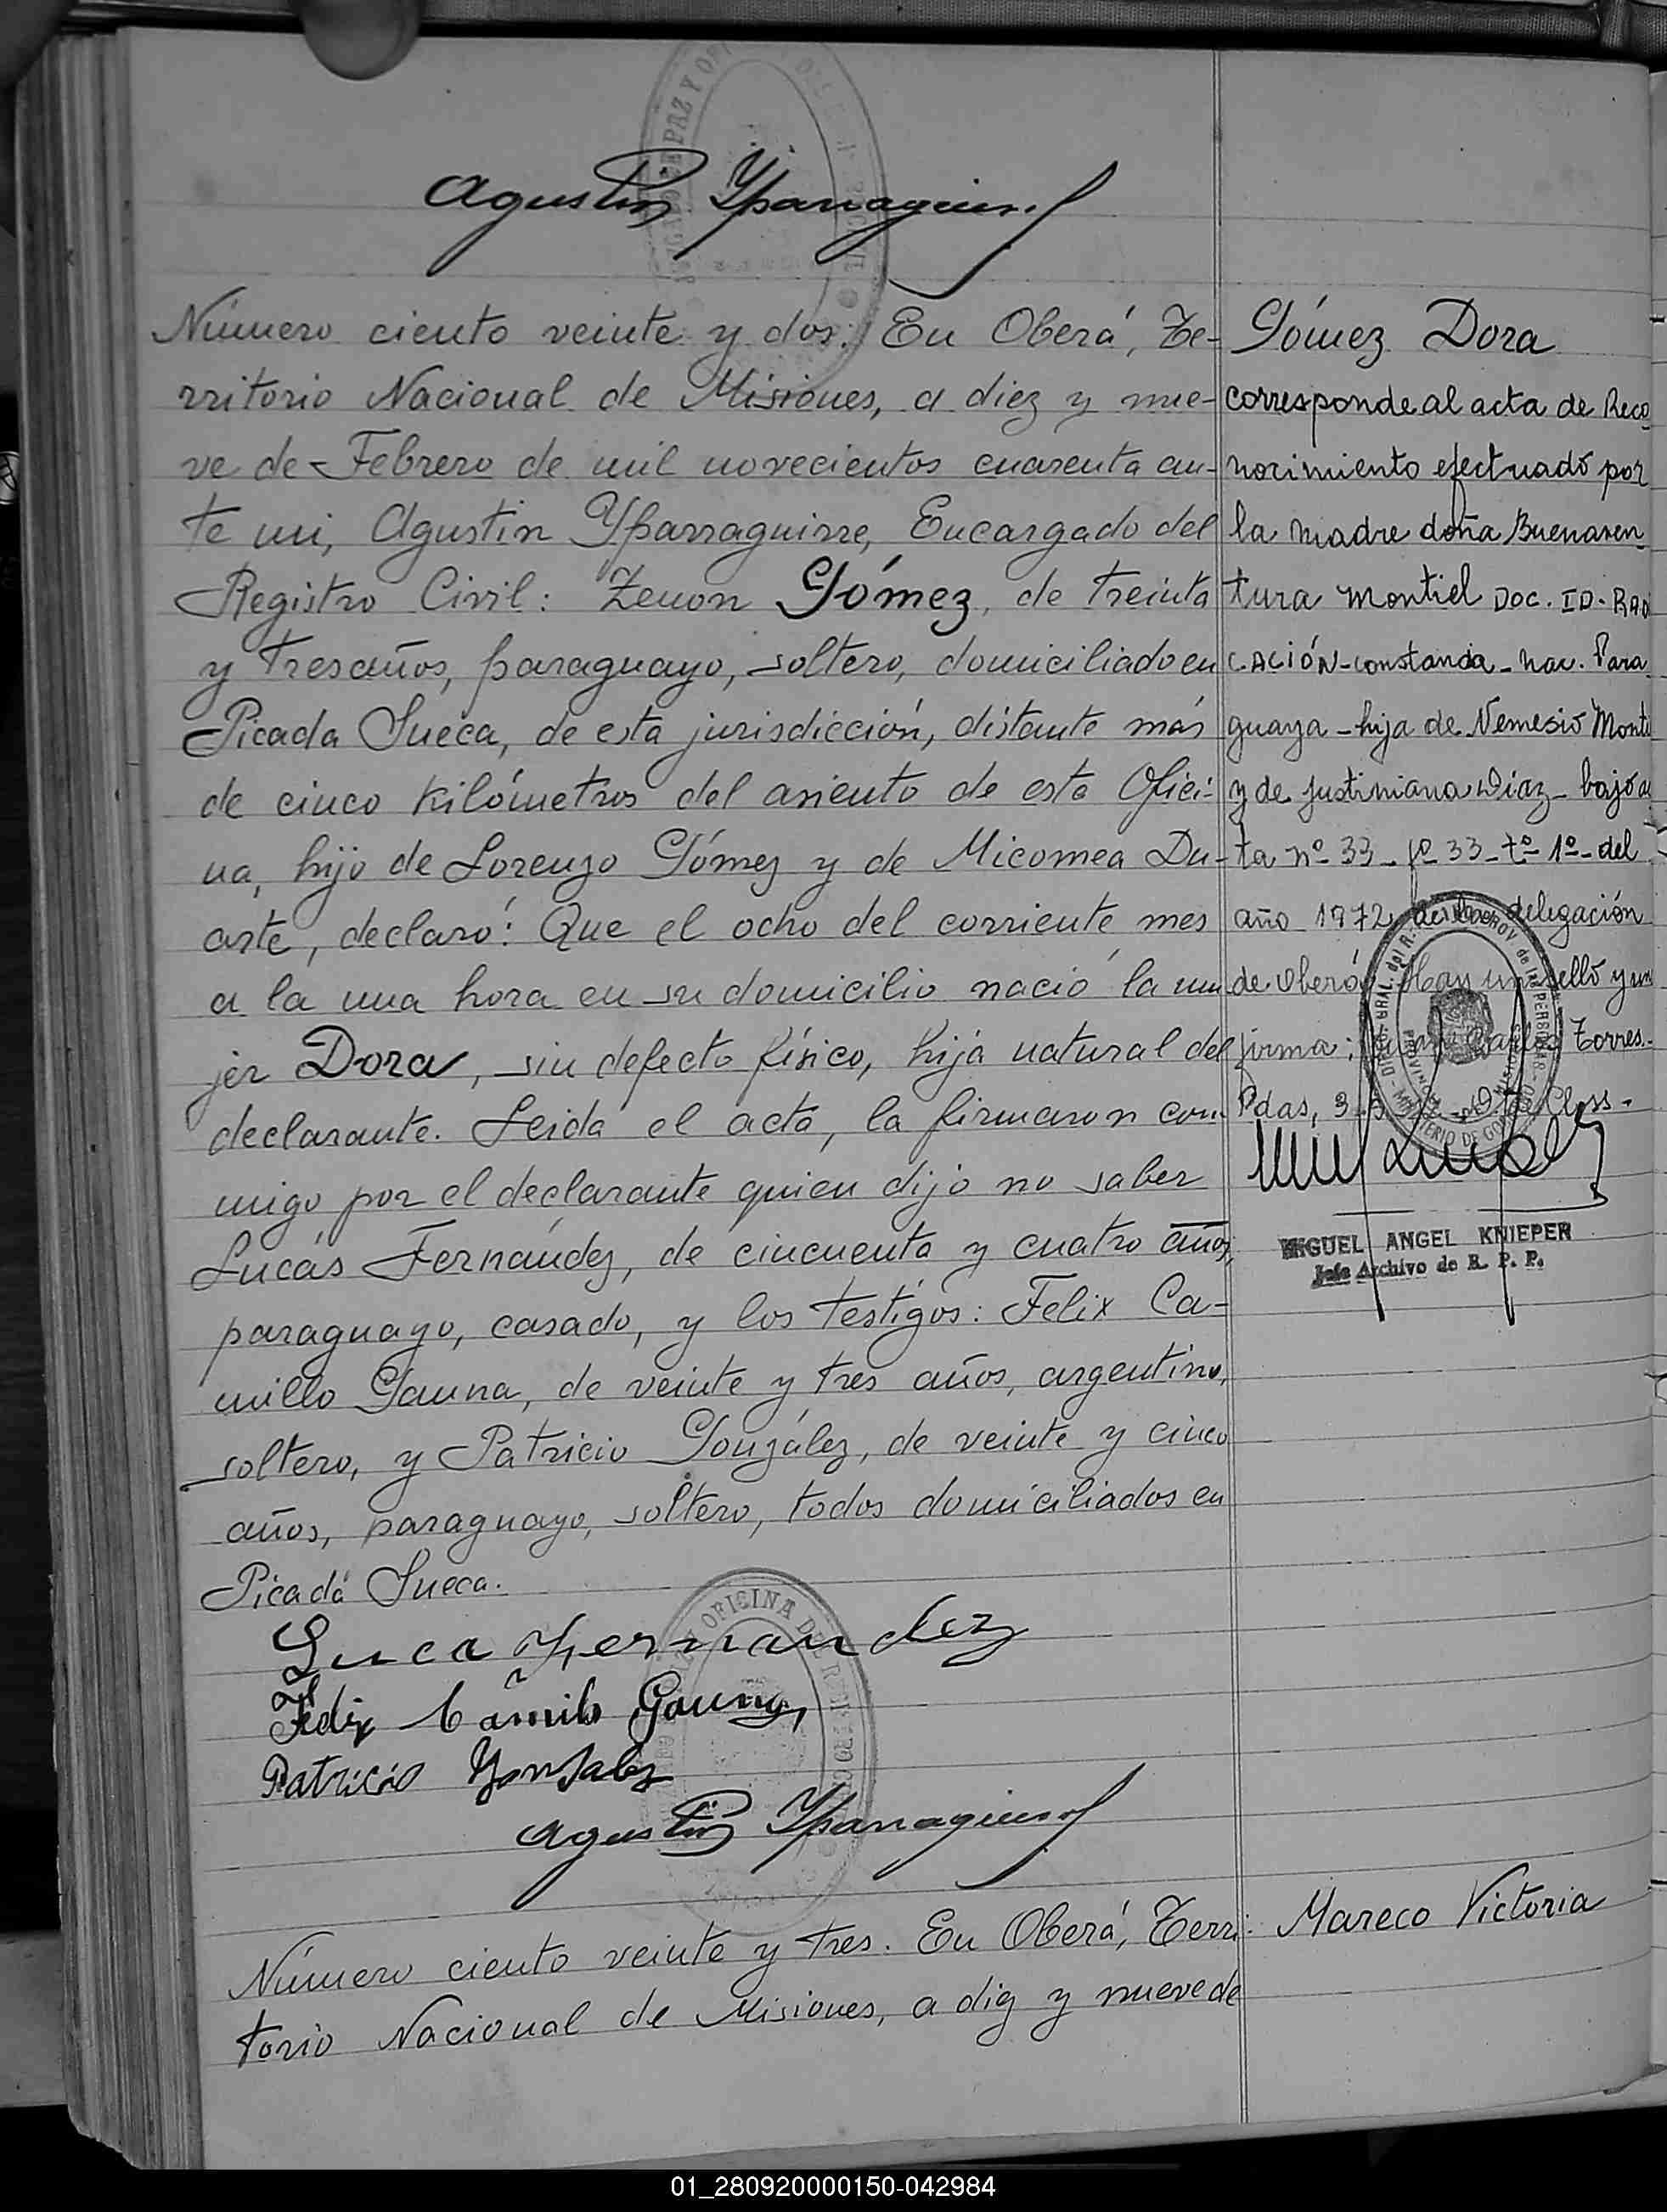 Agustin Yparraguirre
Número ciento veinte y dos: En Oberá, Te-
rritorio Nacional de Misiones, a diez y nue-
ve de Febrero de mil novecientos cuarenta an-
te mi, Agustin Yparraguirre, Encargado del
Registro Civil: Zenon Gómez, de treinta
y tres años, paraguayo, soltero, domiciliado en
Picada Sueca, de esta jurisdicción, distante más
de cinco kilómetros del asiento de esta Ofici-
na, hijo de Lorenzo Gómez y de Micomea Du-
arte, declaró: Que el ocho del corriente mes
a la una hora en su domicilio nació la mu
jer Dora, sin defecto físico, hija natural del
declarante. Leida el acta, la firmaron con-
migo por el declarante quien dijo no saber
Lucás Fernández, de cincuenta y cuatro años,
paraguayo, casado, y los testigos: Felix Ca-
millo Gauna, de veinte y tres años, argentino,
soltero, y Patricio González, de veinte y cinco
años, paraguayo, soltero, todos domiciliados en
Picada Sueca.
Luca Fernandez
Felix Camilo Gauna
Patricio Gonsalez
Agustin Yparraguirre
Número ciento veinte y tres. En Oberá, Terri-
torio Nacional de Misiones, a diez y nueve de
Gómez Dora
corresponde al acta de Reco
nocimiento efectuado por
la madre doña Buenaven
tura Montiel DOC. ID. RADI
CACIÓN-constancia-nac. Para
guaya-hija de Nemesio Monti
y de Justiniana Diaz-bajo ac
ta nº 33-fº 33-tº 1º-del
año 1972, de la delegación
de Oberá. Hay un sello y una
firma: Torres.-
Pdas, 3
MIGUEL ANGEL KNIEPER
Jefe Archivo de R. P. P.
Mareco Victoria
01_280920000150-042984